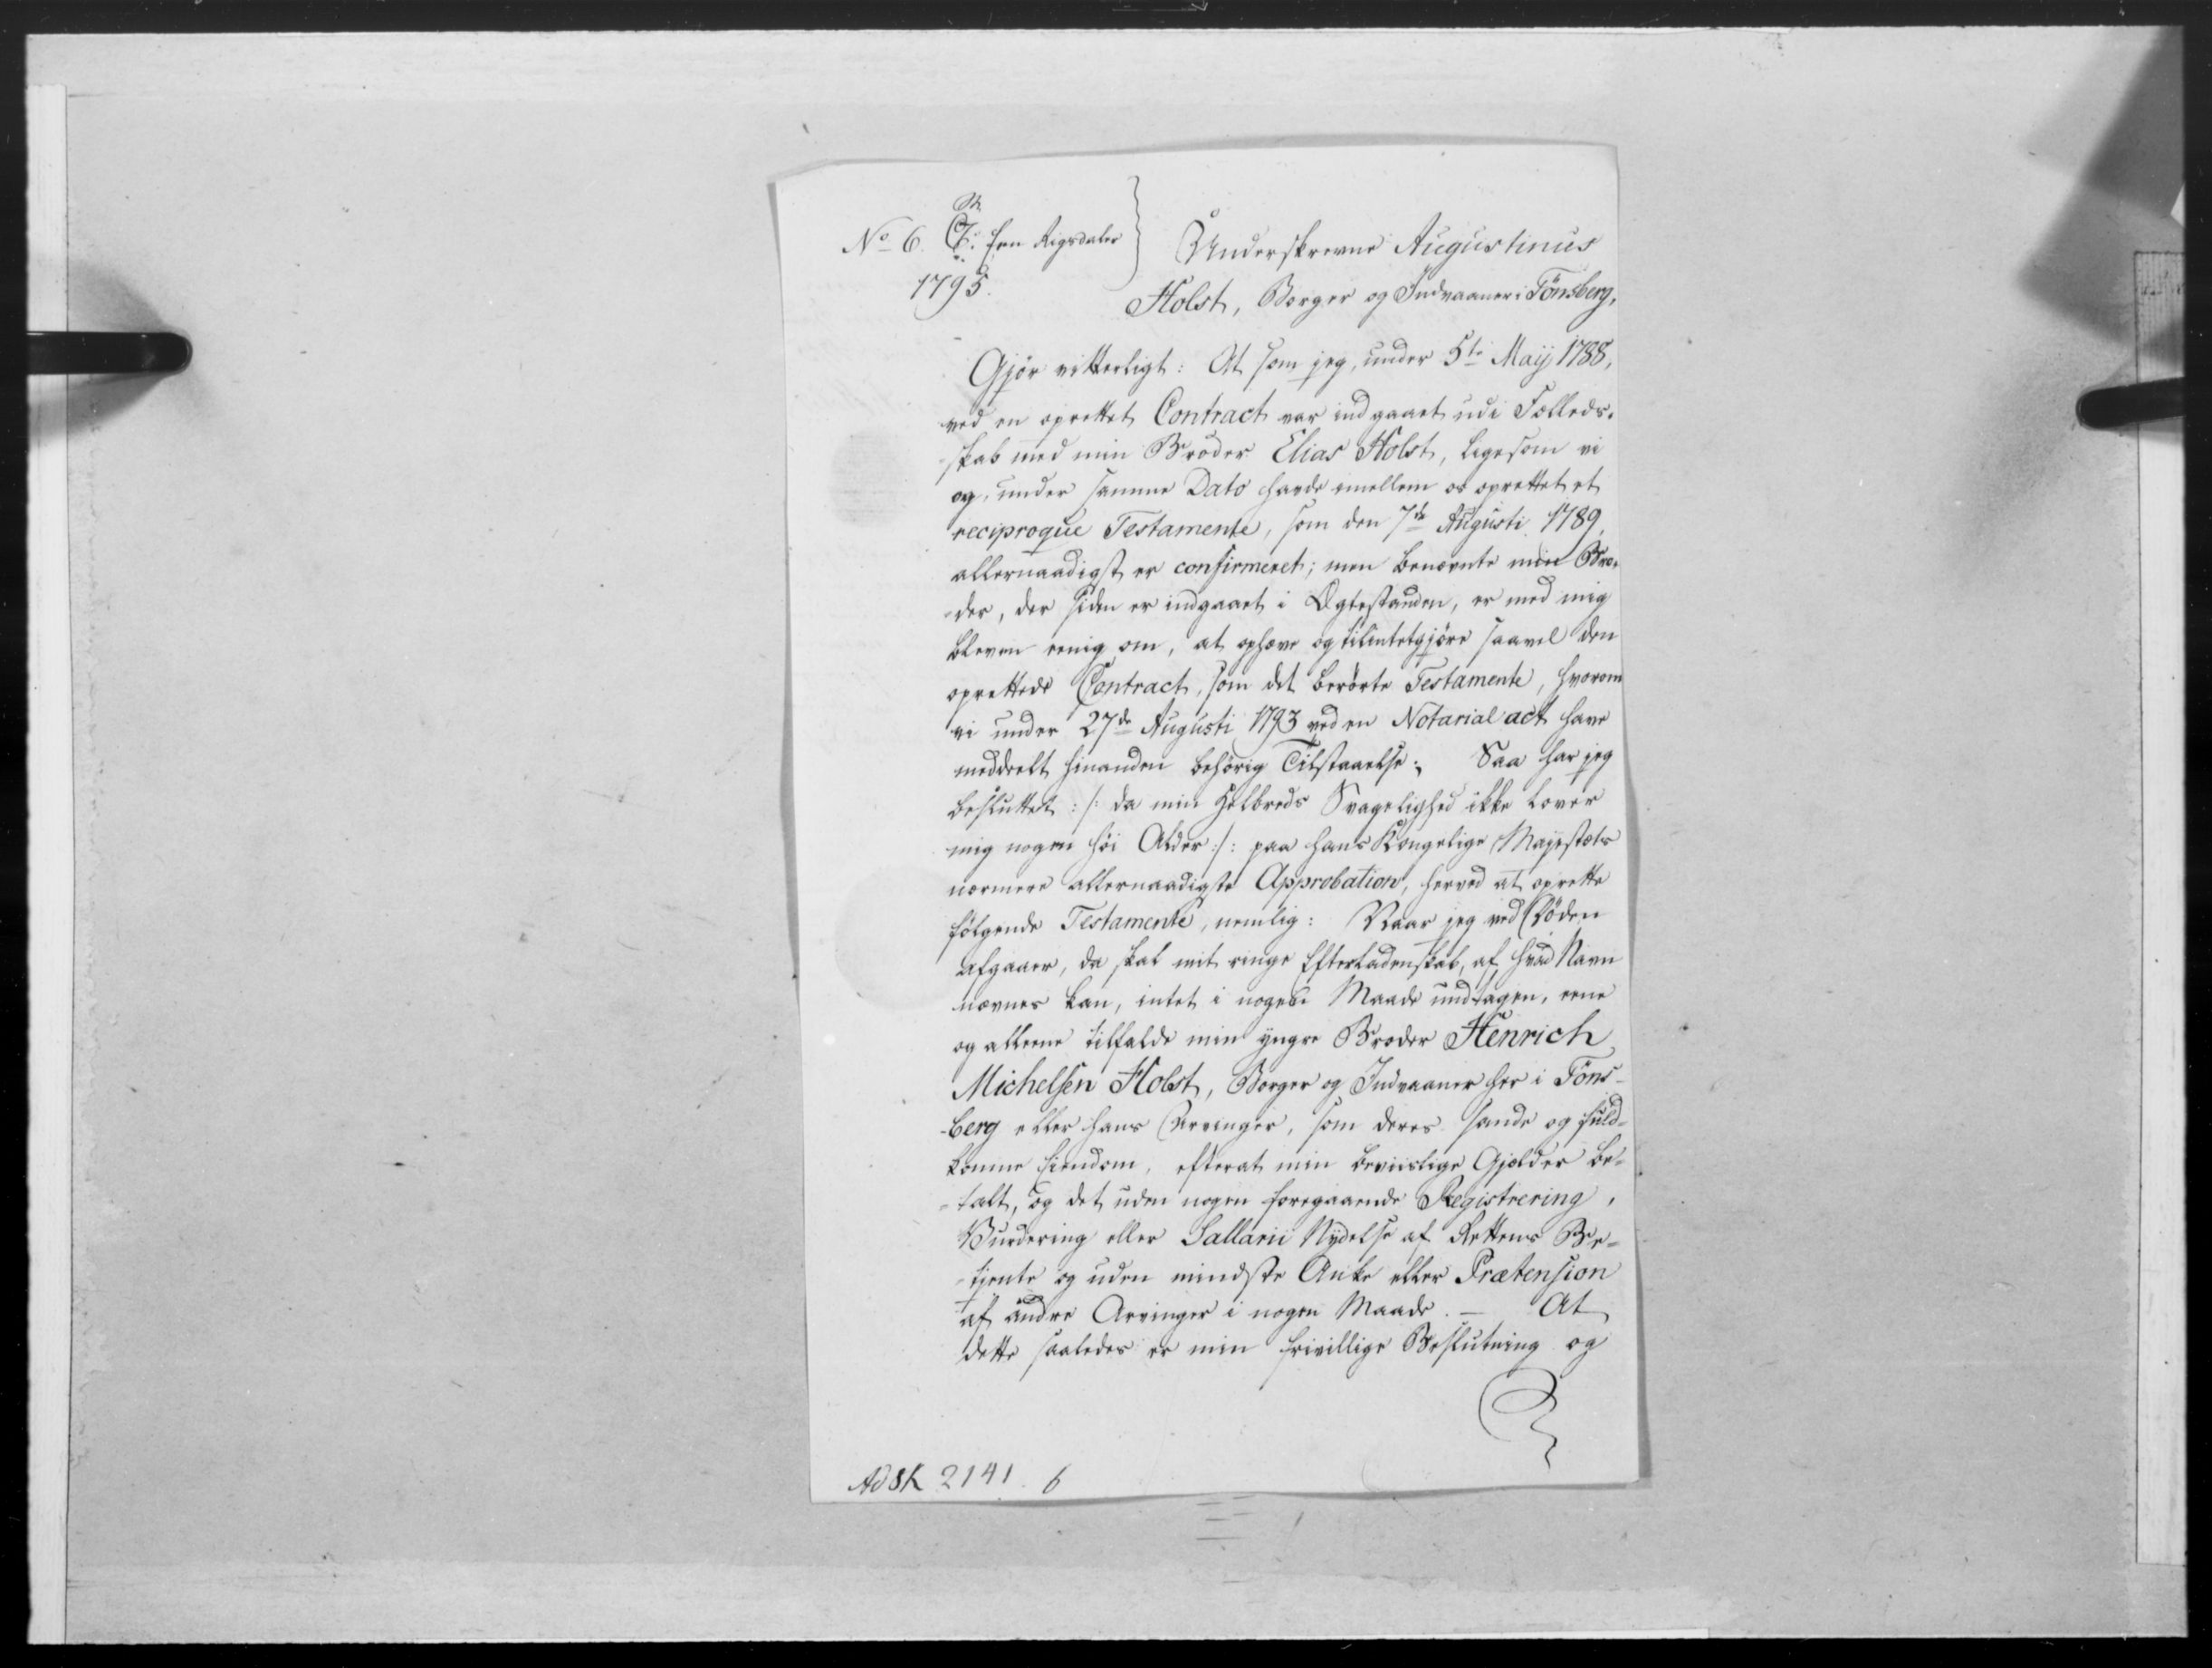 No 6. Een Rigsdaler
1795.
Underskrevne Augustinus
Holst, Borger og Indvaaner i Tönsberg,
Gjör vitterligt: At som jeg, under 5te Maij 1788,
ved en oprettet Contract var indgaaet udi Fælleds-
skab med min Broder Elias Holst, ligesom vi
og, under samme Dato havde imellem os oprettet et
reciproque Testamente, som den 7de Augusti 1789
allernaadigst er confirmeret; men benævnte min Bro-
-der, der siden er indgaaet i Ægtestanden, er med mig
bleven eenig om, at ophæve og tilintetgjöre saavel den
oprettede Contract, som det berörte Testamente, hvorom
vi under 27de Augusti 1793 ved en Notarial act have
meddeelt hinanden behörig Tilstaaelse; Saa har jeg
besluttet :/: da min Helbreds Svagelighed ikke lover
mig nogen höi Alder :/: paa Hans Kongelige Majestæts
nærmere allernaadigste Approbation, herved at oprette
fölgende Testamente, nemlig: Naar jeg ved Döden
afgaaer, da skal mit ringe Efterladenskab, af hvad Navn
nævnes kan, intet i nogen Maade undtagen, eene
og alleene tilfalde min yngre Broder Henrich
Michelsen Holst, Borger og Indvaaner her i Töns-
-berg eller hans Arvinger, som deres sande og fuld-
komne Eiendom, efterat min beviislige Gjæld er be-
-talt, og det uden nogen foregaaende Registrering,
Vurdering eller Sallarii Nydelse af Rettens Be-
-tjente og uden mindste Anke eller Prætension
af andre Arvinger i nogen Maade. — At
dette saaledes er min frivillige Beslutning og
Ad 8k 2141. 6